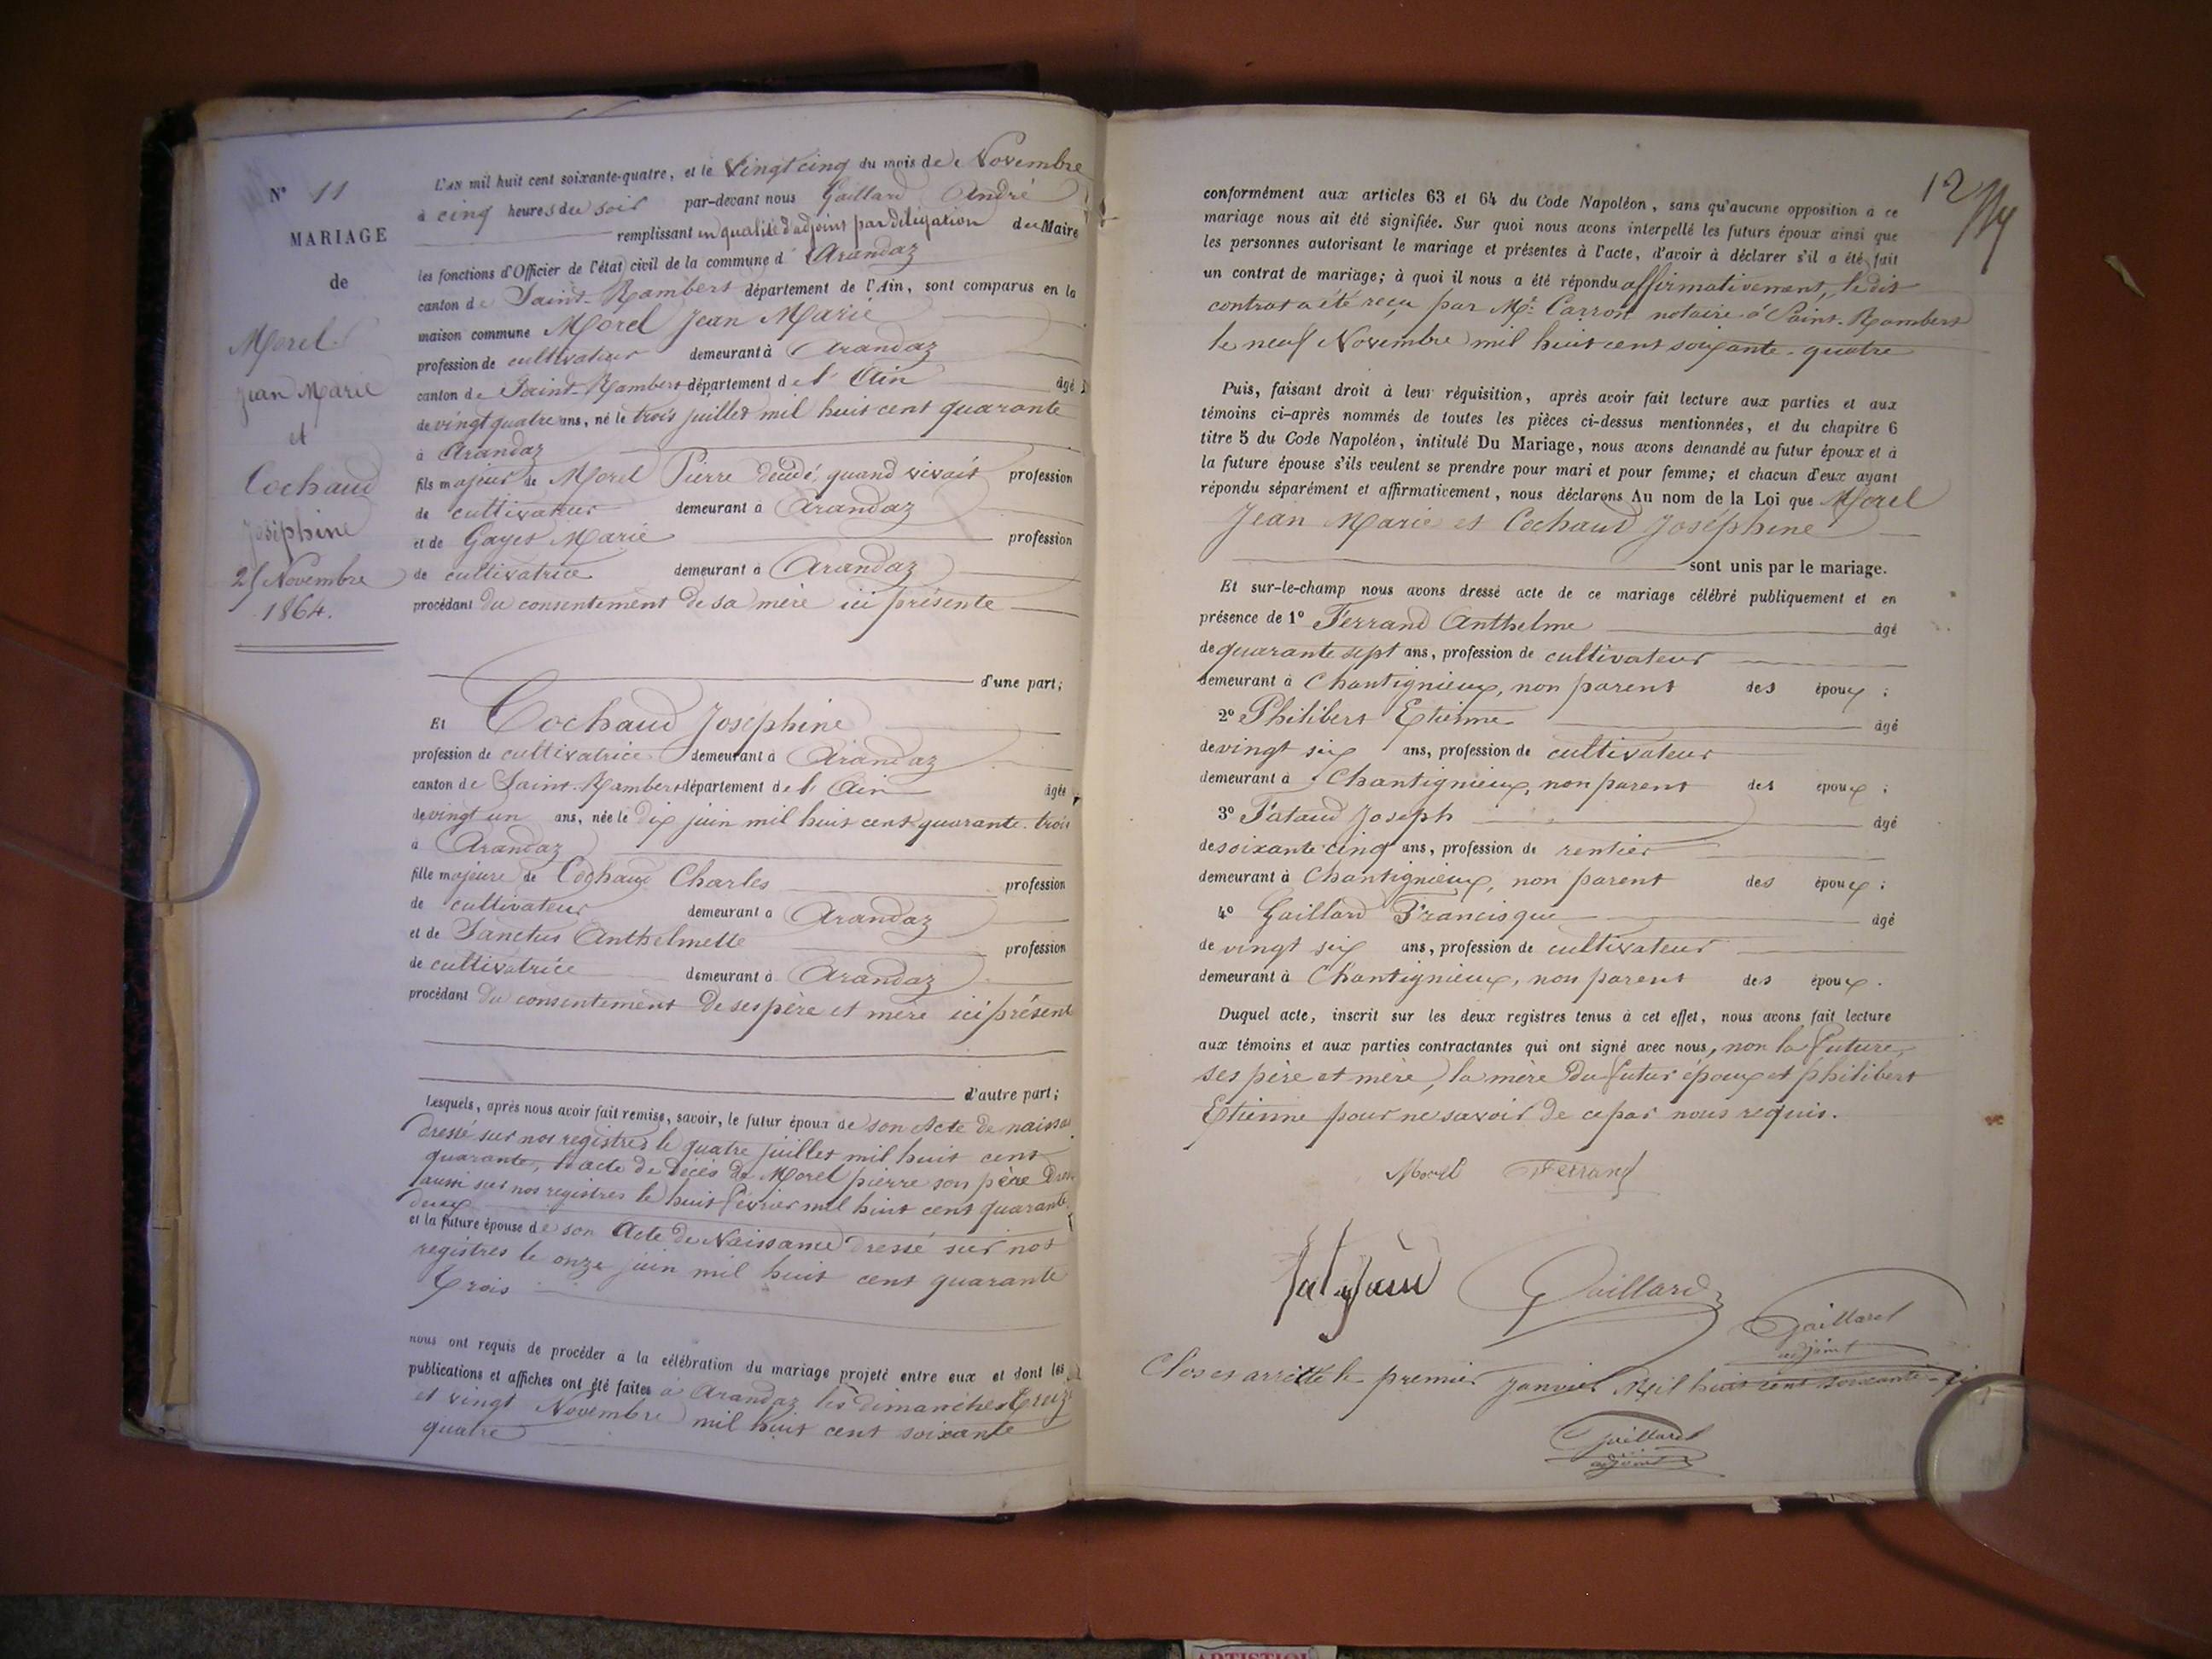 N° 11
MARIAGE
de
Morel
Jean Marie
et
Cochaud
Joséphine
25 Novembre
1864.
L'AN mil huit cent soixante-quatre, et le vingt cinq du mois de Novembre
à cinq heures du soir par-devant nous Gaillard André
remplissant en qualité d'adjoint par délégation du Maire
les fonctions d'Officier de l'état civil de la commune d'Arandaz
canton de Saint-Rambert département de l'Ain, sont comparus en la
maison commune Morel Jean Marie
profession de cultivateur demeurant à Arandaz
canton de Saint-Rambert département de l'Ain âgé
de vingt quatre ans, né le trois juillet mil huit cent quarante
à Arandaz
fils majeur de Morel Pierre décédé, quand vivait profession
de cultivateur demeurant à Arandaz
et de Gayet Marie profession
de cultivatrice demeurant à Arandaz
procédant du consentement de sa mère ici présente
d'une part;
Et Cochaud Joséphine
profession de cultivatrice demeurant à Arandaz
canton de Saint-Rambert département de l'Ain âgée
de vingt un ans, née le dix juin mil huit cent quarante-trois
à Arandaz
fille majeure de Cochaud Charles profession
de cultivateur demeurant à Arandaz
et de Sanctus Anthelmette profession
de cultivatrice demeurant à Arandaz
procédant du consentement de ses père et mère ici présent
d'autre part;
Lesquels, après nous avoir fait remise, savoir, le futur époux de son Acte de naissa
dressé sur nos registres le quatre juillet mil huit cent
quarante, l'acte de décès de Morel pierre son père
aussi sur nos registres le huit février mil huit cent quarante
deux
et la future épouse de son Acte de Naissance dressé sur nos
registres le onze juin mil huit cent quarante
trois
nous ont requis de procéder à la célébration du mariage projeté entre eux et dont les
publications et affiches ont été faites à Arandaz les dimanches treize
et vingt Novembre mil huit cent soixante
quatre
12
conformément aux articles 63 et 64 du Code Napoléon, sans qu'aucune opposition à ce
mariage nous ait été signifiée. Sur quoi nous avons interpellé les futurs époux ainsi que
les personnes autorisant le mariage et présentes à l'acte, d'avoir à déclarer s'il a été fait
un contrat de mariage; à quoi il nous a été répondu affirmativement, le dit
contrat a été reçu par Me. Carron notaire à Saint-Rambert
le neuf Novembre mil huit cent soixante-quatre
Puis, faisant droit à leur réquisition, après avoir fait lecture aux parties et aux
témoins ci-après nommés de toutes les pièces ci-dessus mentionnées, et du chapitre 6
titre 5 du Code Napoléon, intitulé Du Mariage, nous avons demandé au futur époux et à
la future épouse s'ils veulent se prendre pour mari et pour femme; et chacun d'eux ayant
répondu séparément et affirmativement, nous déclarons Au nom de la Loi que Morel
Jean Marie et Cochaud Joséphine
sont unis par le mariage.
Et sur-le-champ nous avons dressé acte de ce mariage célébré publiquement et en
présence de 1° Ferrand Anthelme âgé
de quarante sept ans, profession de cultivateur
demeurant à Chantignieux, non parent des époux;
2° Philibert Etienne âgé
de vingt six ans, profession de cultivateur
demeurant à Chantignieux, non parent des époux;
3° Fataud Joseph âgé
de soixante cinq ans, profession de rentier
demeurant à Chantignieux, non parent des époux;
4° Gaillard Francisque âgé
de vingt six ans, profession de cultivateur
demeurant à Chantignieux, non parent des époux.
Duquel acte, inscrit sur les deux registres tenus à cet effet, nous avons fait lecture
aux témoins et aux parties contractantes qui ont signé avec nous, non la future,
ses père et mère, la mère du futur époux et philibert
Etienne pour ne savoir de ce par nous requis.
Morel Ferrand
Gaillard
Gaillard
adjoint
Clos et arrêtté le premier Janvier Mil huit cent soixante
Gaillard
adjoint